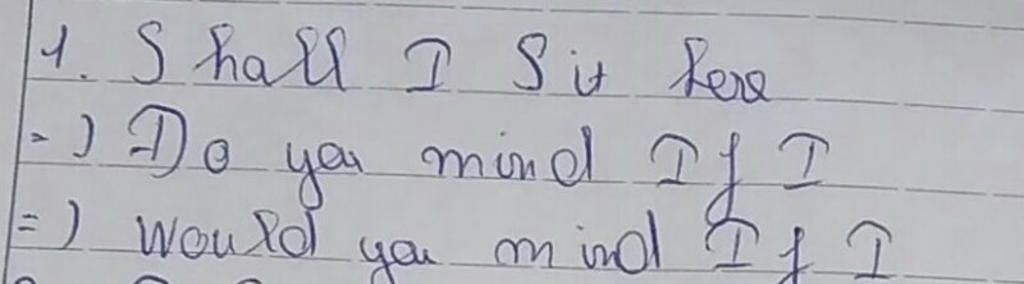 1. Shall I Sit here
=) Do you mind If I
=) would you mind If I